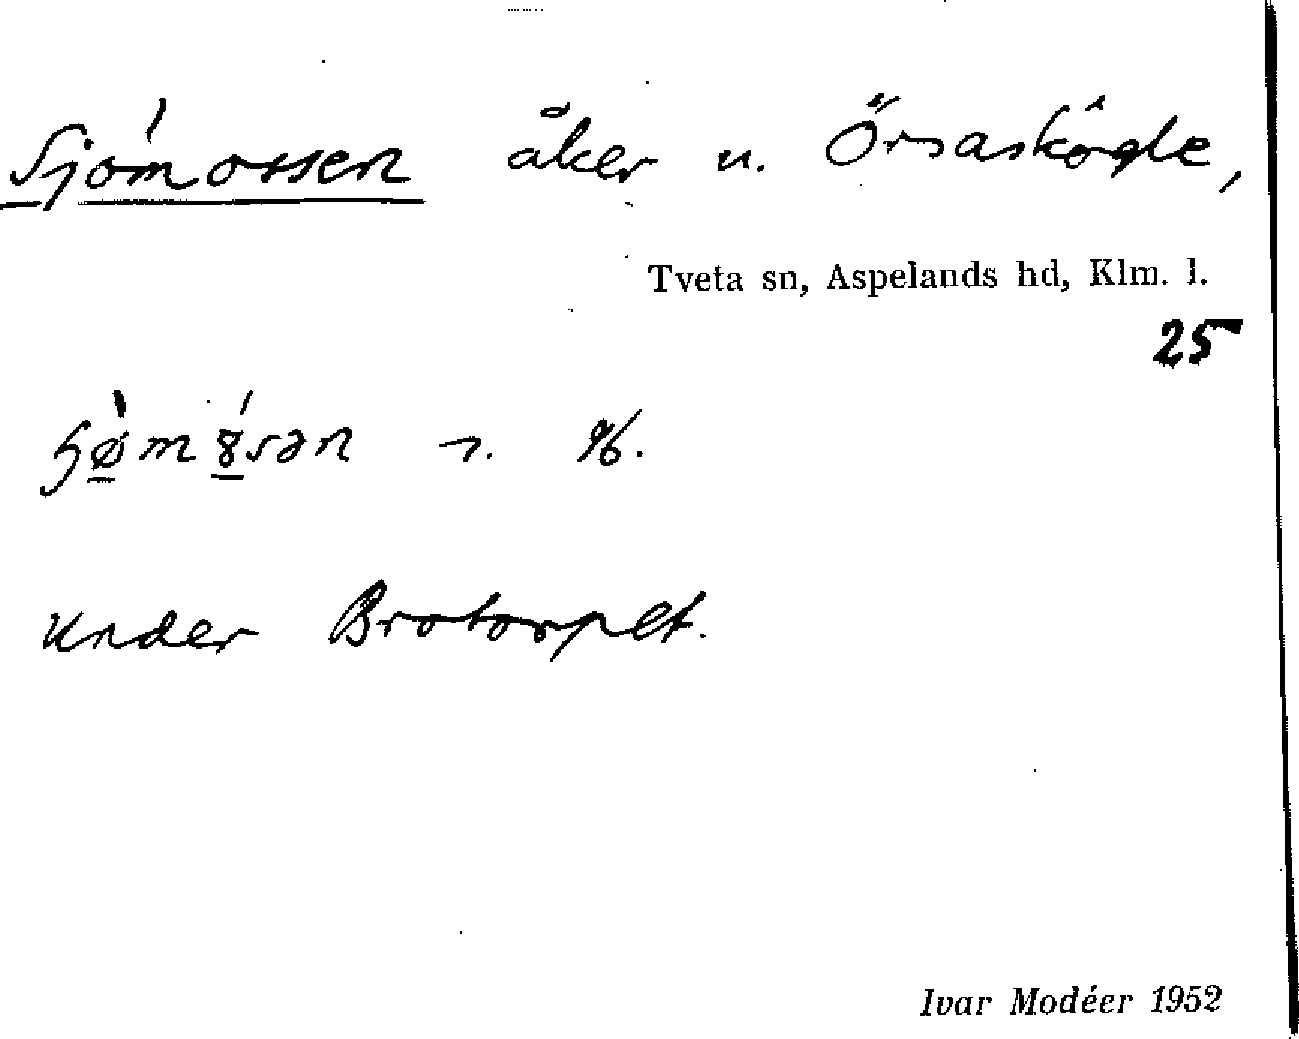 Sjömossen åker u. Örsaskögle,
Tveta sn, Aspelands hd, Klm. l.
25
Under Brotorpet.
Ivar Modéer 1952